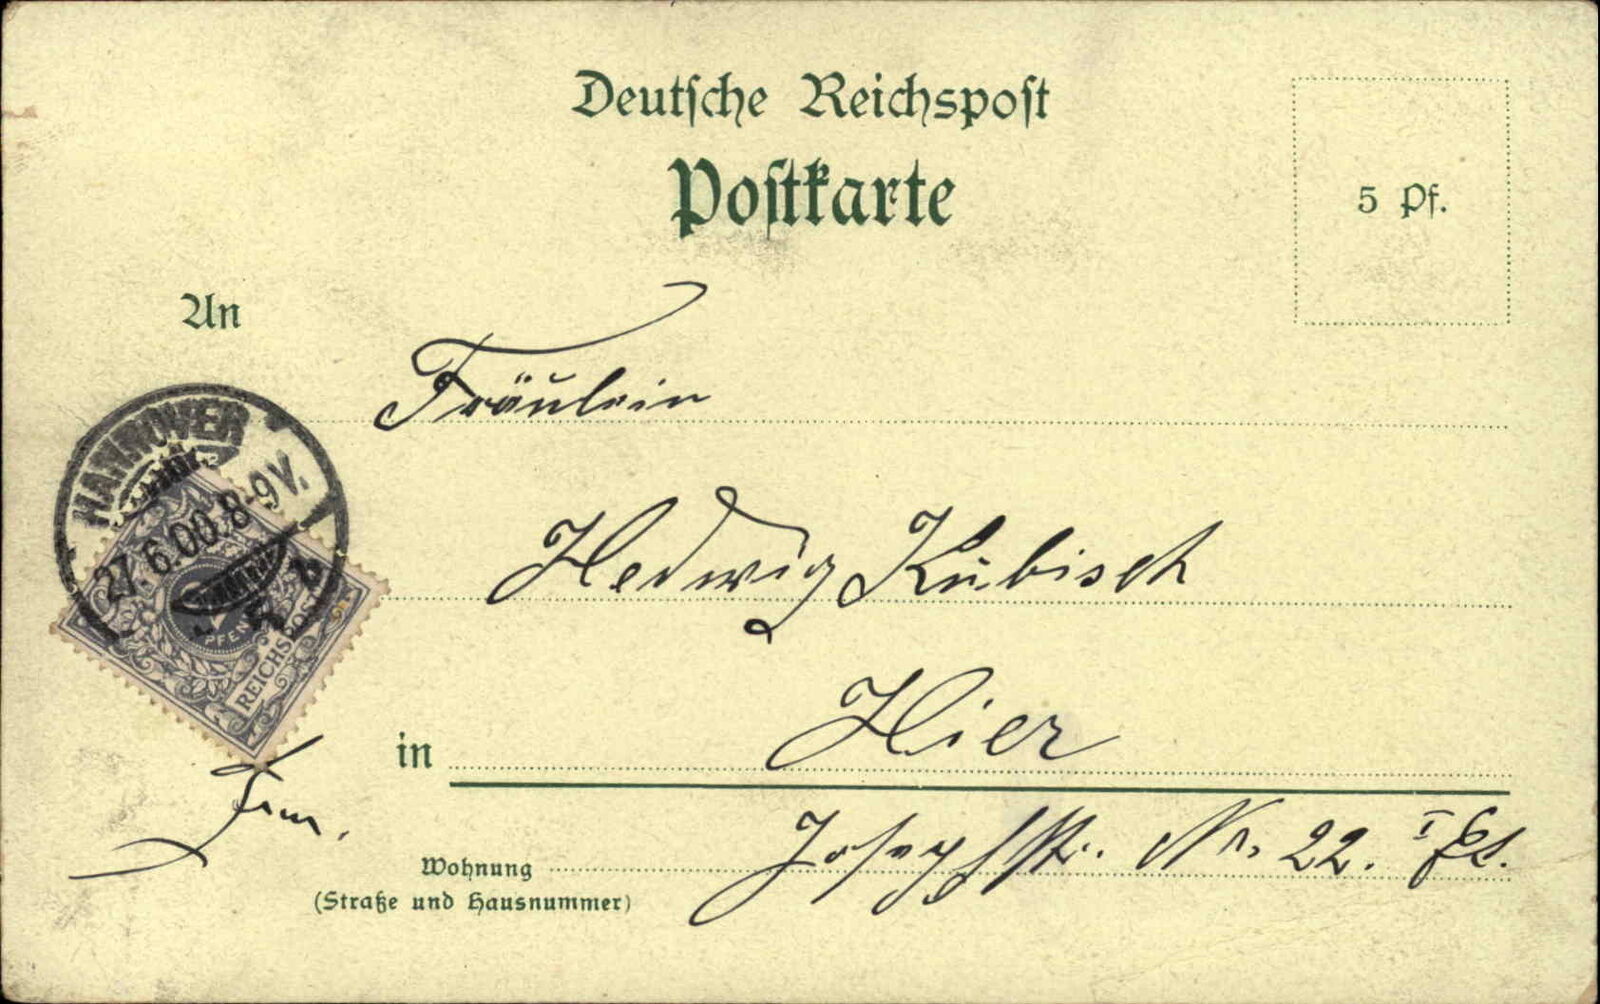 Deutsche Reichspost
Postkarte
5 Pf.
An
Fräulein
HANNOVER
27.6.00.8-9V.
PFENNIG
REICHSPOST
Hedwig Kubisch
in Hier
Frm.
Wohnung Josephstr. Nr. 22. I Et.
(Straße und Hausnummer)